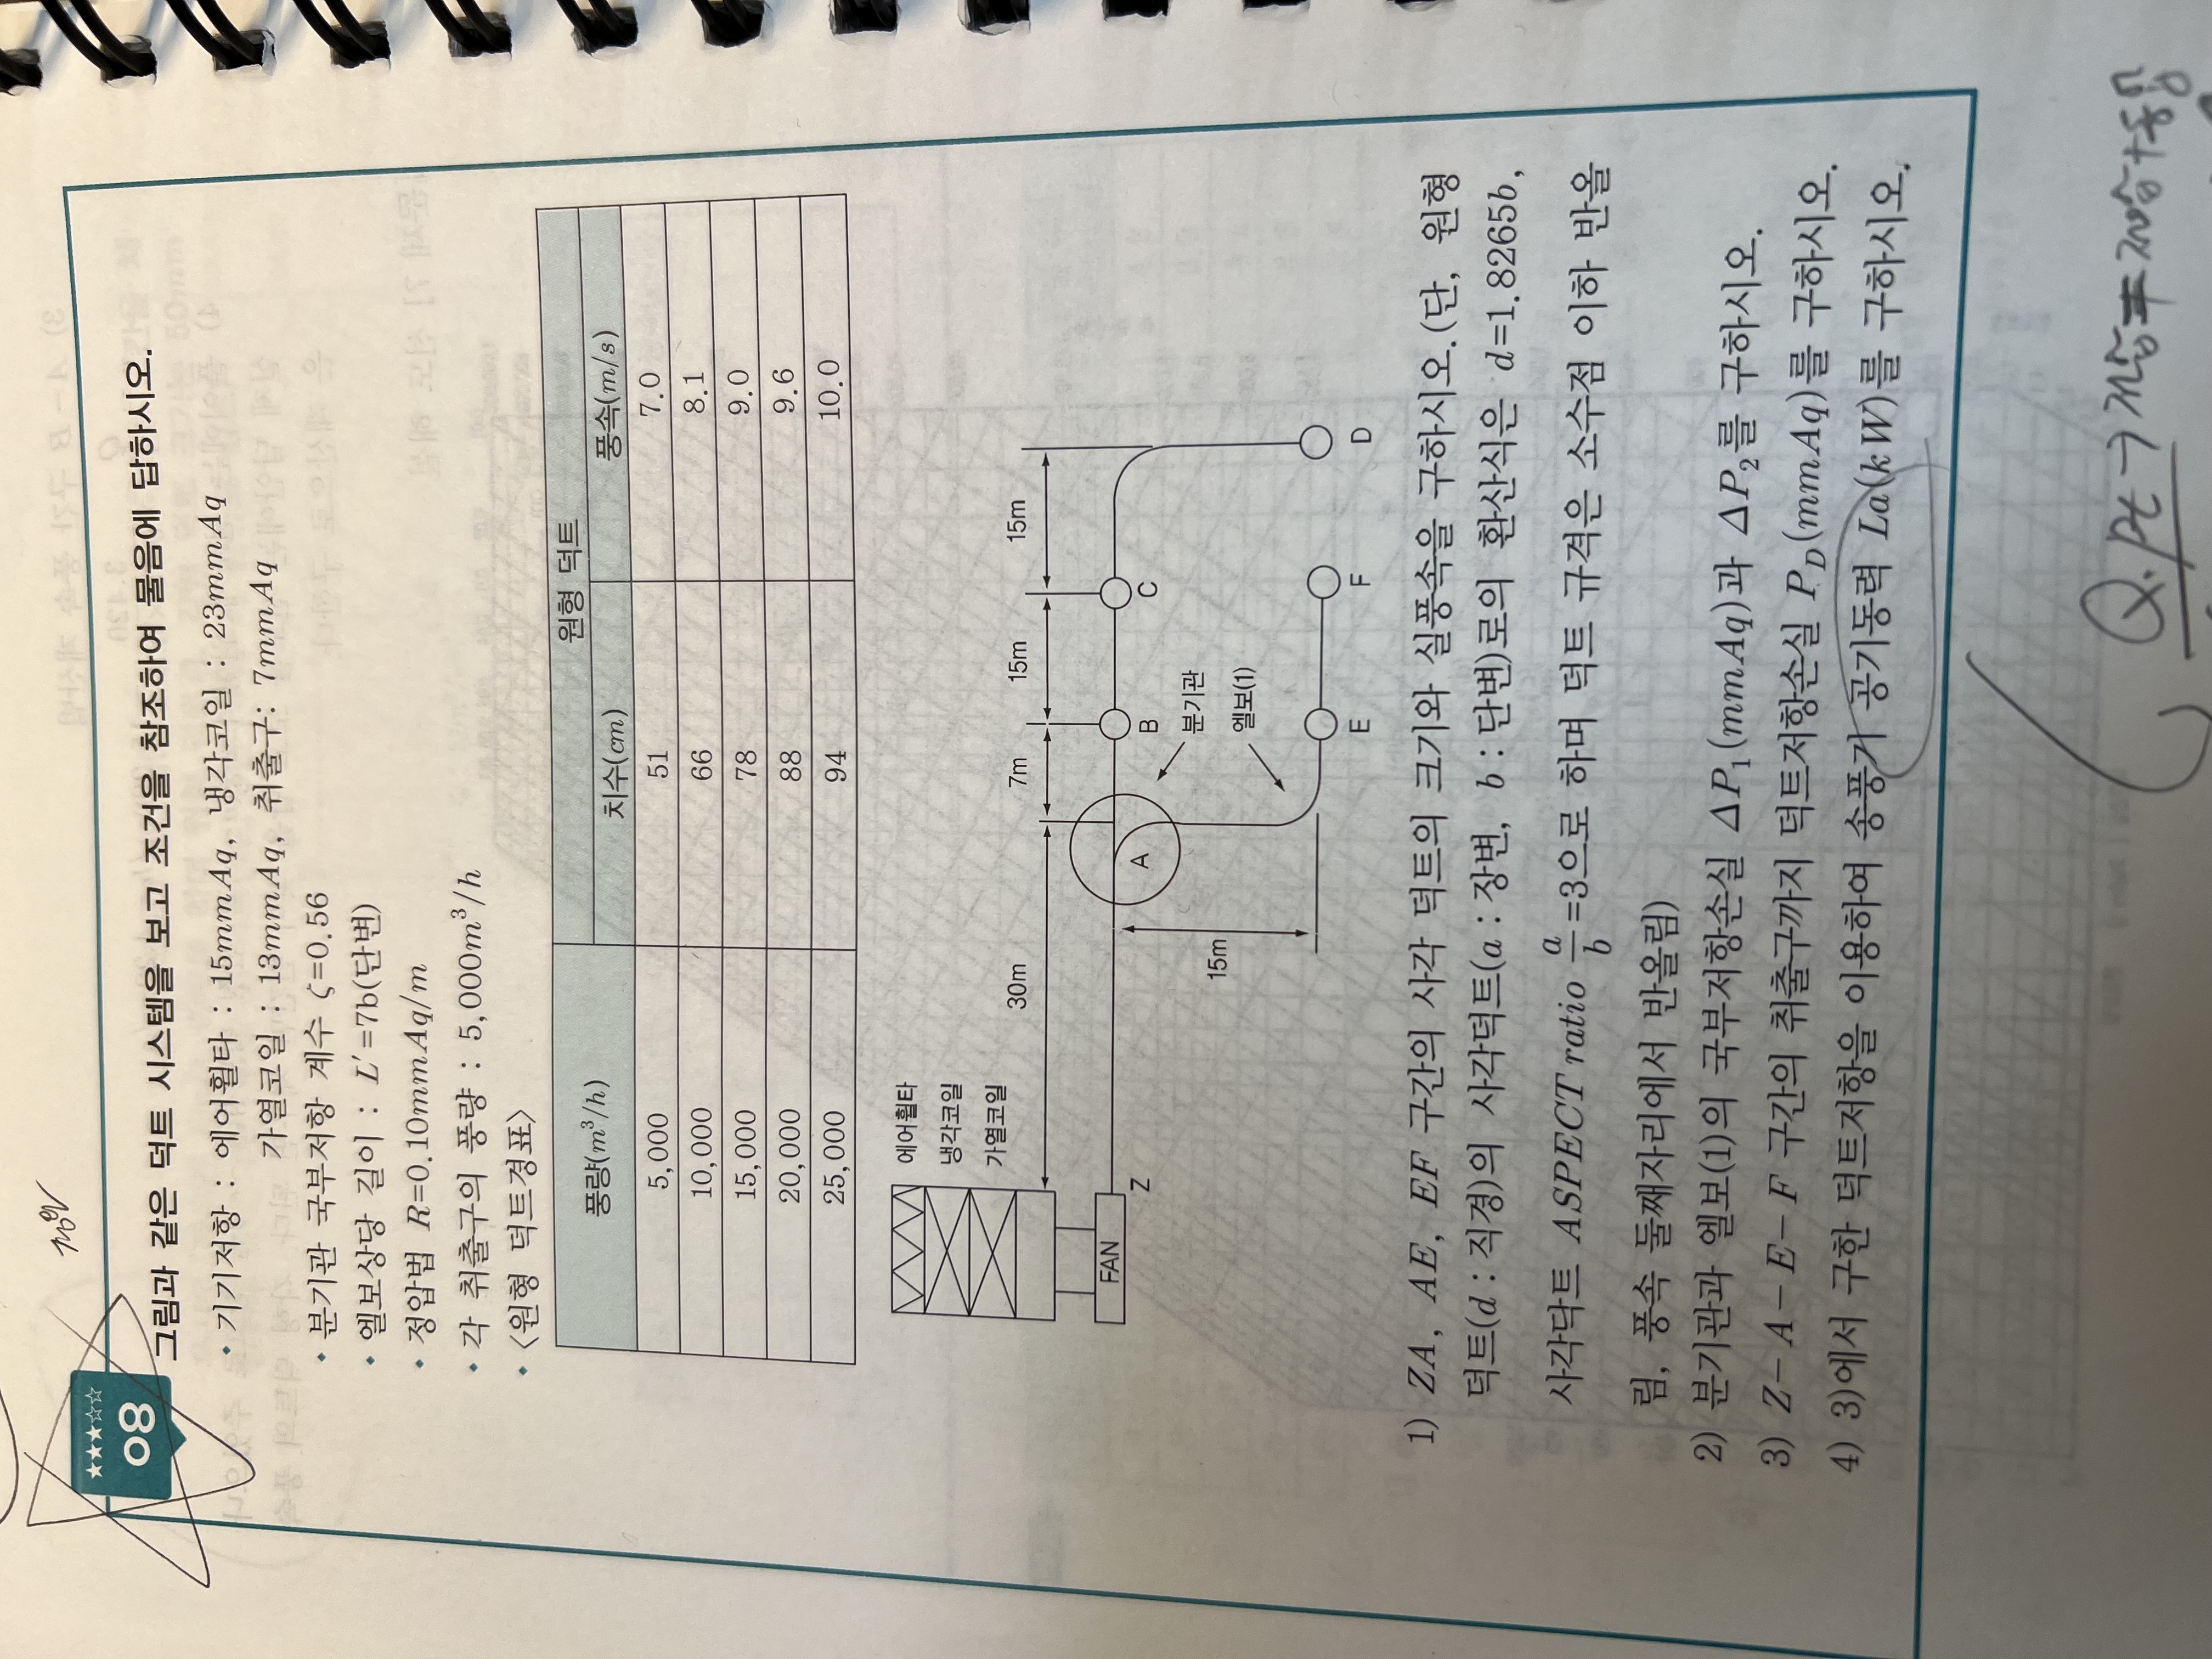 ★★★☆☆
08
그림과 같은 덕트 시스템을 보고 조건을 참조하여 물음에 답하시오.
• 기기저항 : 에어휠타 : 15mmAq, 냉각코일 : 23mmAq
가열코일 : 13mmAq, 취출구: 7mmAq
• 분기관 국부저항 계수 ζ=0.56
• 엘보상당 길이 : L′=7b(단변)
• 정압법 R=0.10mmAq/m
• 각 취출구의 풍량 : 5,000m³/h
• <원형 덕트경표>
풍량(m³/h) 원형 덕트
치수(cm) 풍속(m/s)
5,000 51 7.0
10,000 66 8.1
15,000 78 9.0
20,000 88 9.6
25,000 94 10.0
에어휠타
냉각코일
가열코일
30m 7m 15m 15m
FAN Z A B C
분기관
15m
엘보(1)
E F D
1) ZA, AE, EF 구간의 사각 덕트의 크기와 실풍속을 구하시오.(단, 원형
덕트(d : 직경)의 사각덕트(a : 장변, b : 단변)로의 환산식은 d=1.8265b,
사각닥트 ASPECT ratio a/b=3으로 하며 덕트 규격은 소수점 이하 반올
림, 풍속 둘째자리에서 반올림)
2) 분기관과 엘보(1)의 국부저항손실 ΔP₁(mmAq)과 ΔP₂를 구하시오.
3) Z-A-E-F 구간의 취출구까지 덕트저항손실 P_D(mmAq)를 구하시오.
4) 3)에서 구한 덕트저항을 이용하여 송풍기 공기동력 La(kW)를 구하시오.
Q.Pt